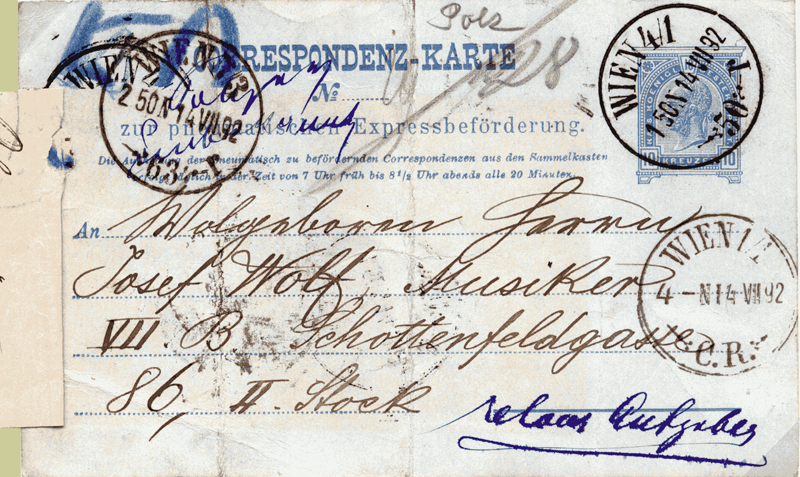 Polz
CORRESPONDENZ-KARTE
128
№
zur pneumatischen Expressbeförderung.
Die der pneumatisch zu befördernden Correspondenzen aus den Sammelkasten
erfolgt täglich in der Zeit von 7 Uhr früh bis 8½ Uhr abends alle 20 Minuten.
WIEN 4/1
1 50N 14 VII 92
10 KREUZER 10
WIEN
2 50N 14 VII 92
An Wolgeborern Herrn
Josef Wolf, Musiker
VII. B. Schottenfeldgasse
86, II. Stock
WIEN 1/1
4 - N 14 VII 92
C.R.
retour Aufgeber